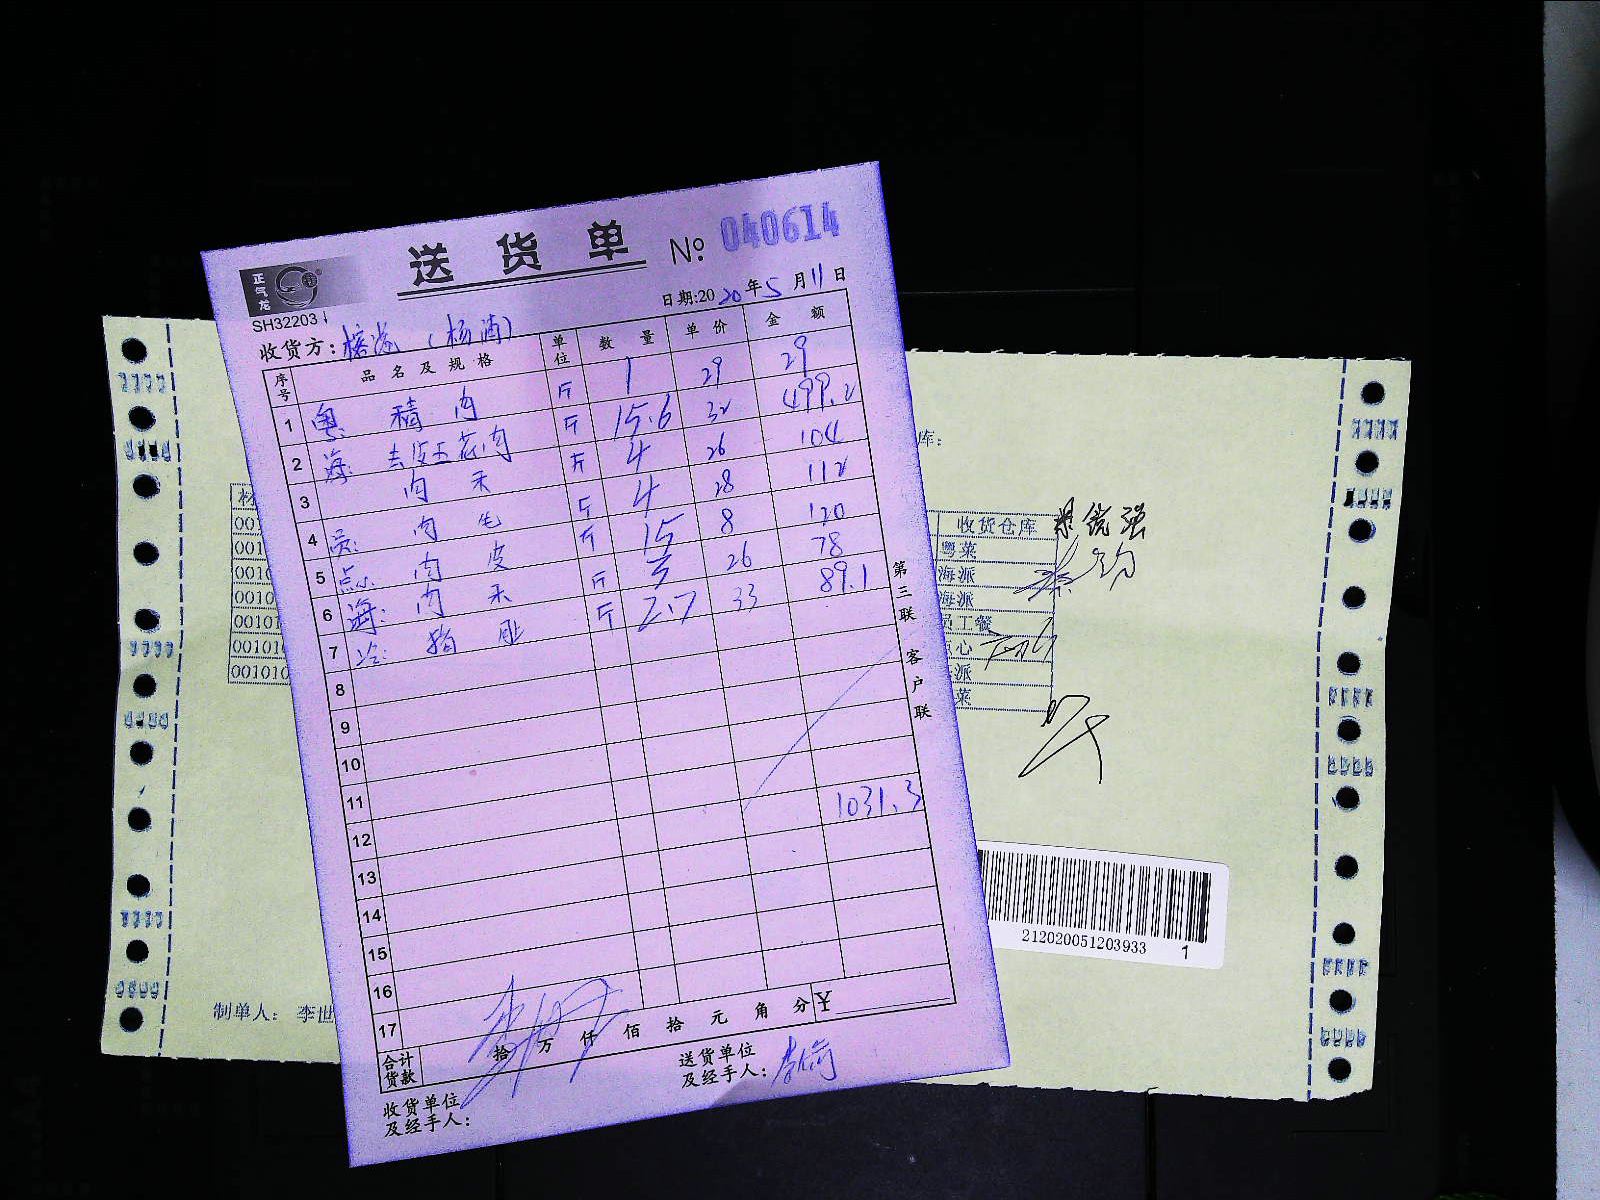 正气龙
送货单 № 040614
SH32203
日期:2020年5月11日
收货方: (杨浦)
序号 品名及规格 单位 数量 单价 金额
1 粤: 精肉 斤 1 29 29
2 海: 去皮五花肉 斤 15.6 32 499.2
3 肉 斤 4 26 104
4 员: 肉 斤 4 28 112
5 点: 肉皮 斤 15 8 120
6 海: 肉 斤 3 26 78
7 冷: 斤 2.7 33 89.1
8
9
10
11
12 1031.3
13
14
15
16
17
合计货款 拾 万 仟 佰 拾 元 角 分 ¥
收货单位及经手人:
送货单位及经手人:
第三联 客户联
库:
收货仓库
粤菜
海派
海派
员工餐
点心
海派
菜
材
001
001
0010
0010
00101
001010
001010
制单人: 李世
212020051203933 1